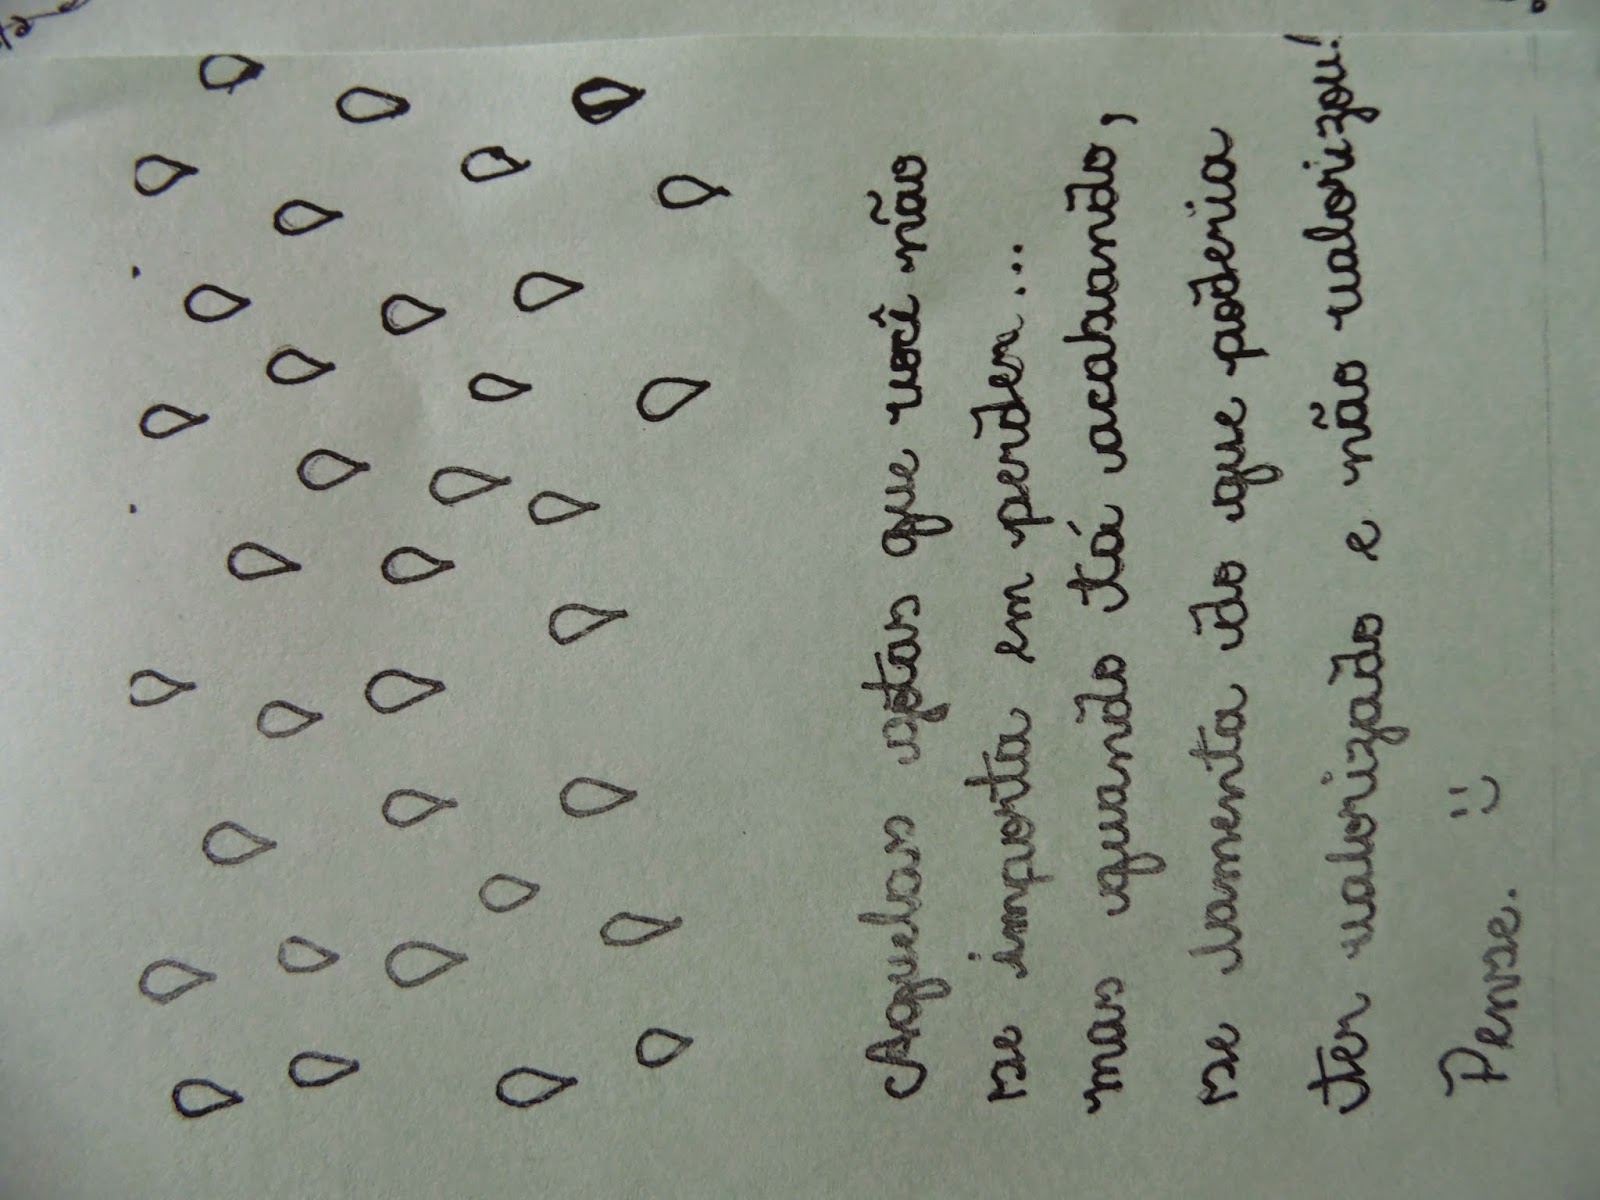 Aquelas gotas que você não
se importa em perder...
mas quando tá acabando,
se lamenta do que poderia
ter valorizado e não valorizou!
Pense. :)